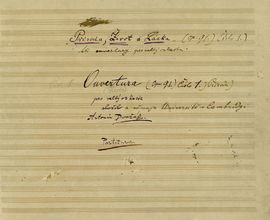 Příroda, Život a Láska. (Op. 91.) Číslo 1.)
tři ouvertury pro velký orkestr.
Ouvertura (Op 91.) Číslo 1. (Příroda)
pro velký orkestr
složil a věnuje Universitě v Cambridgi
Antonín Dvořák.
Partitura